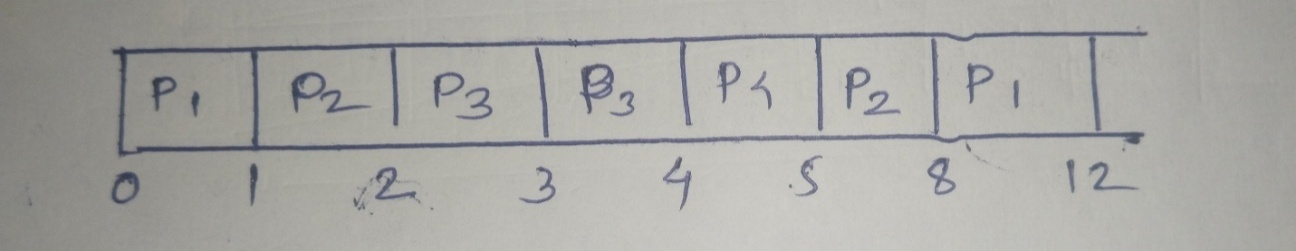 P1 P2 P3 P3 P4 P2 P1
0 1 2 3 4 5 8 12